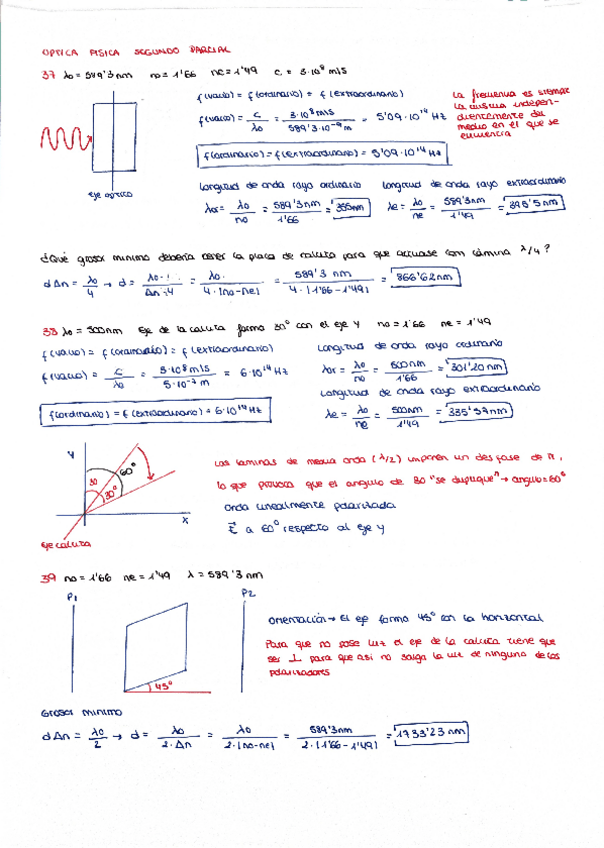 OPTICA FISICA SEGUNDO PARCIAL
37 λo = 589'3 nm no = 1'66 ne = 1'49 c = 3·10⁸ m/s
f(vacio) = f(ordinario) = f(extraordinario)
f(vacio) = c/λo = 3·10⁸ m/s / 589'3·10⁻⁹ m = 5'09·10¹⁴ Hz
f(ordinario) = f(extraordinario) = 5'09·10¹⁴ Hz
La frecuencia es siempre
la misma indepen-
dientemente del
medio en el que se
encuentra
eje optico
Longitud de onda rayo ordinario
λor = λo/no = 589'3nm/1'66 = 355nm
Longitud de onda rayo extraordinario
λe = λo/ne = 589'3nm/1'49 = 395'5nm
¿Qué grosor minimo deberia tener la placa de calcita para que actuase com lámina λ/4?
dΔn = λo/4 → d = λo·1/Δn·4 = λo·/4·(no-ne) = 589'3 nm/4·(1'66-1'49) = 866'62nm
38 λo = 500nm Eje de la calcita forma 30° con el eje y no = 1'66 ne = 1'49
f(vacio) = f(ordinario) = f(extraordinario)
f(vacio) = c/λo = 3·10⁸ m/s / 5·10⁻⁷ m = 6·10¹⁴ Hz
f(ordinario) = f(extraordinario) = 6·10¹⁴ Hz
Longitud de onda rayo ordinario
λor = λo/no = 500nm/1'66 = 301'20nm
Longitud de onda rayo extraordinario
λe = λo/ne = 500nm/1'49 = 335'57nm
y
60°
30
30°
x
Eje calcita
Las laminas de media onda (λ/2) imponen un desfase de π,
lo que provoca que el angulo de 30 "se duplique" → angulo = 60°
onda linealmente polarizada
E⃗ a 60° respecto al eje y
39 no = 1'66 ne = 1'49 λ = 589'3 nm
P1
P2
45°
orientación → El eje forma 45° con la horizontal
Para que no pase luz el eje de la calcita tiene que
ser ⊥ para que asi no salga la luz de ninguno de los
polarizadores
Grosor minimo
dΔn = λo/2 → d = λo/2·Δn = λo/2·(no-ne) = 589'3nm/2·(1'66-1'49) = 1733'23 nm